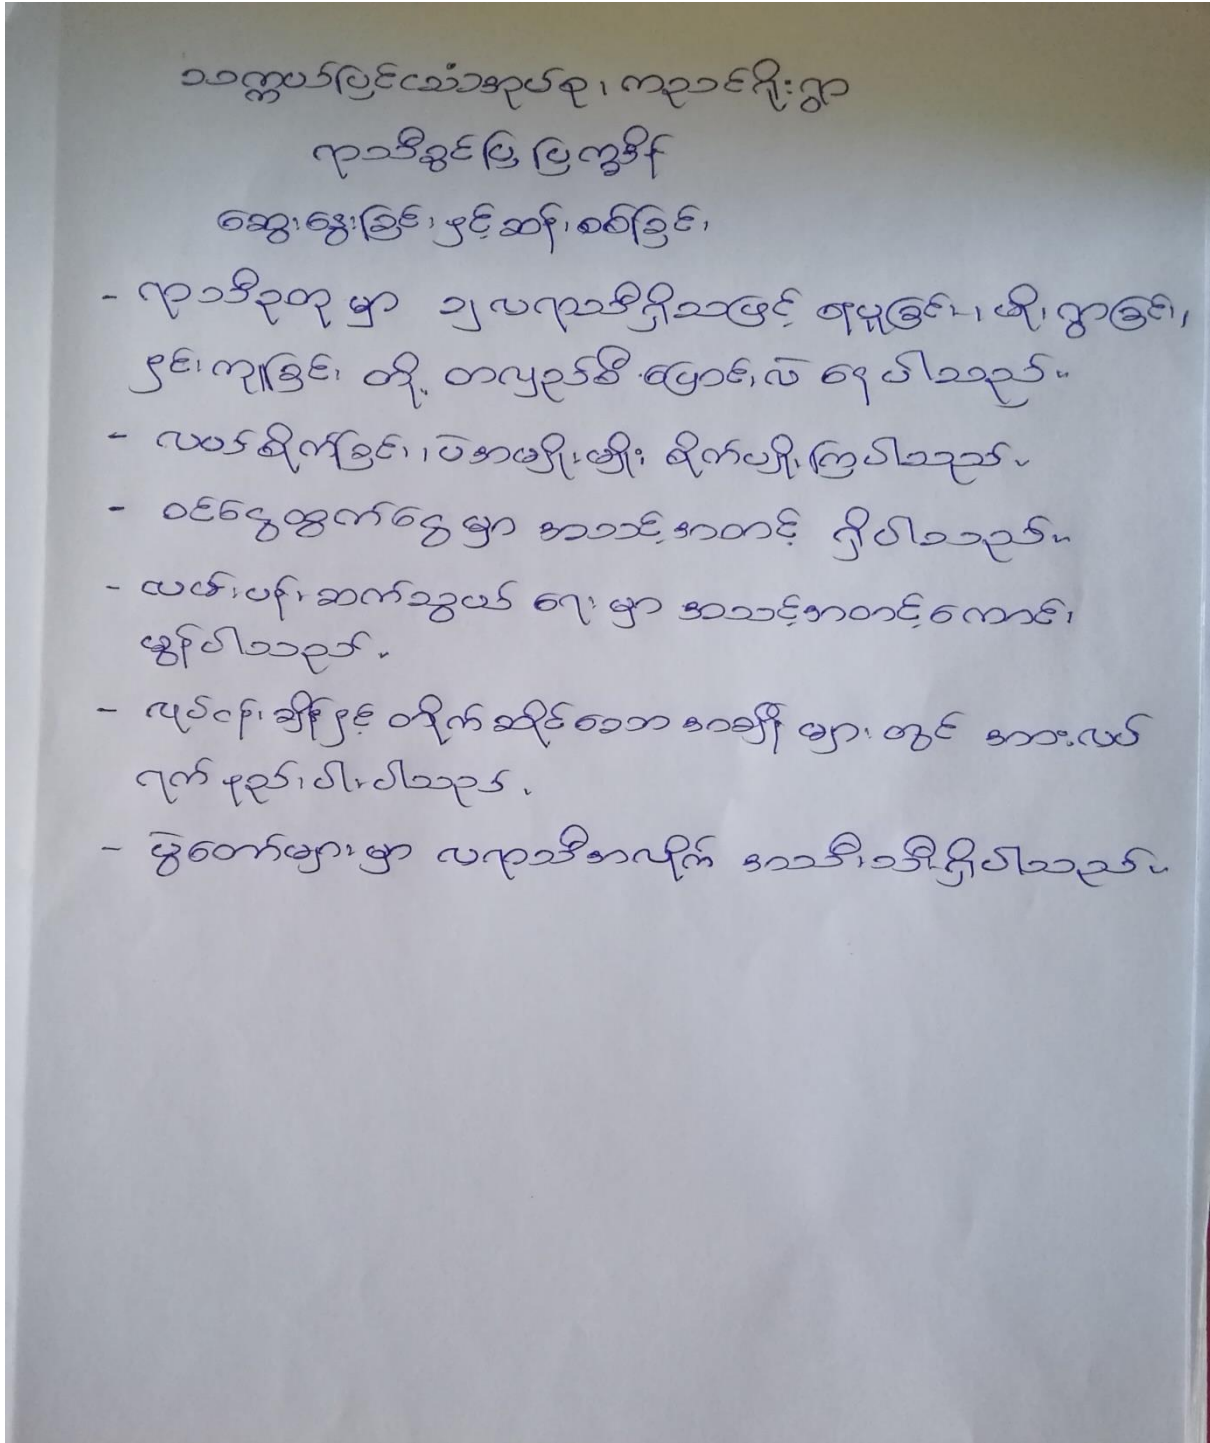 သက္ကယ်ပြင်သံအုပ်စု၊ ကညင်ဂိုးရွာ
ရာသီခွင်ပြ ပြက္ခဒိန်
ဆွေးနွေးခြင်းနှင့်ဆန်းစစ်ခြင်း
- ရာသီဥတုမှာ ၁၂လရာသီရှိသဖြင့် နေပူခြင်း၊ မိုးရွာခြင်း၊
နှင်းကျခြင်း တို့ တလှည့်စီ ပြောင်းလဲ နေပါသည်။
- လယ်စိုက်ခြင်း၊ ပဲအမျိုးမျိုး စိုက်ပျိုးကြပါသည်။
- ဝင်ငွေထွက်ငွေမှာ အသင့်အတင့် ရှိပါသည်။
- လမ်းပန်းဆက်သွယ် ရေးမှာ အသင့်အတင့်ကောင်း
မွန်ပါသည်။
- လုပ်ငန်းချိန်နှင့် တိုက်ဆိုင်သော အချိန်များတွင် အားလပ်
ရက်နည်းပါးပါသည်။
- ပွဲတော်များမှာ လရာသီအလိုက် အသီးသီးရှိပါသည်။